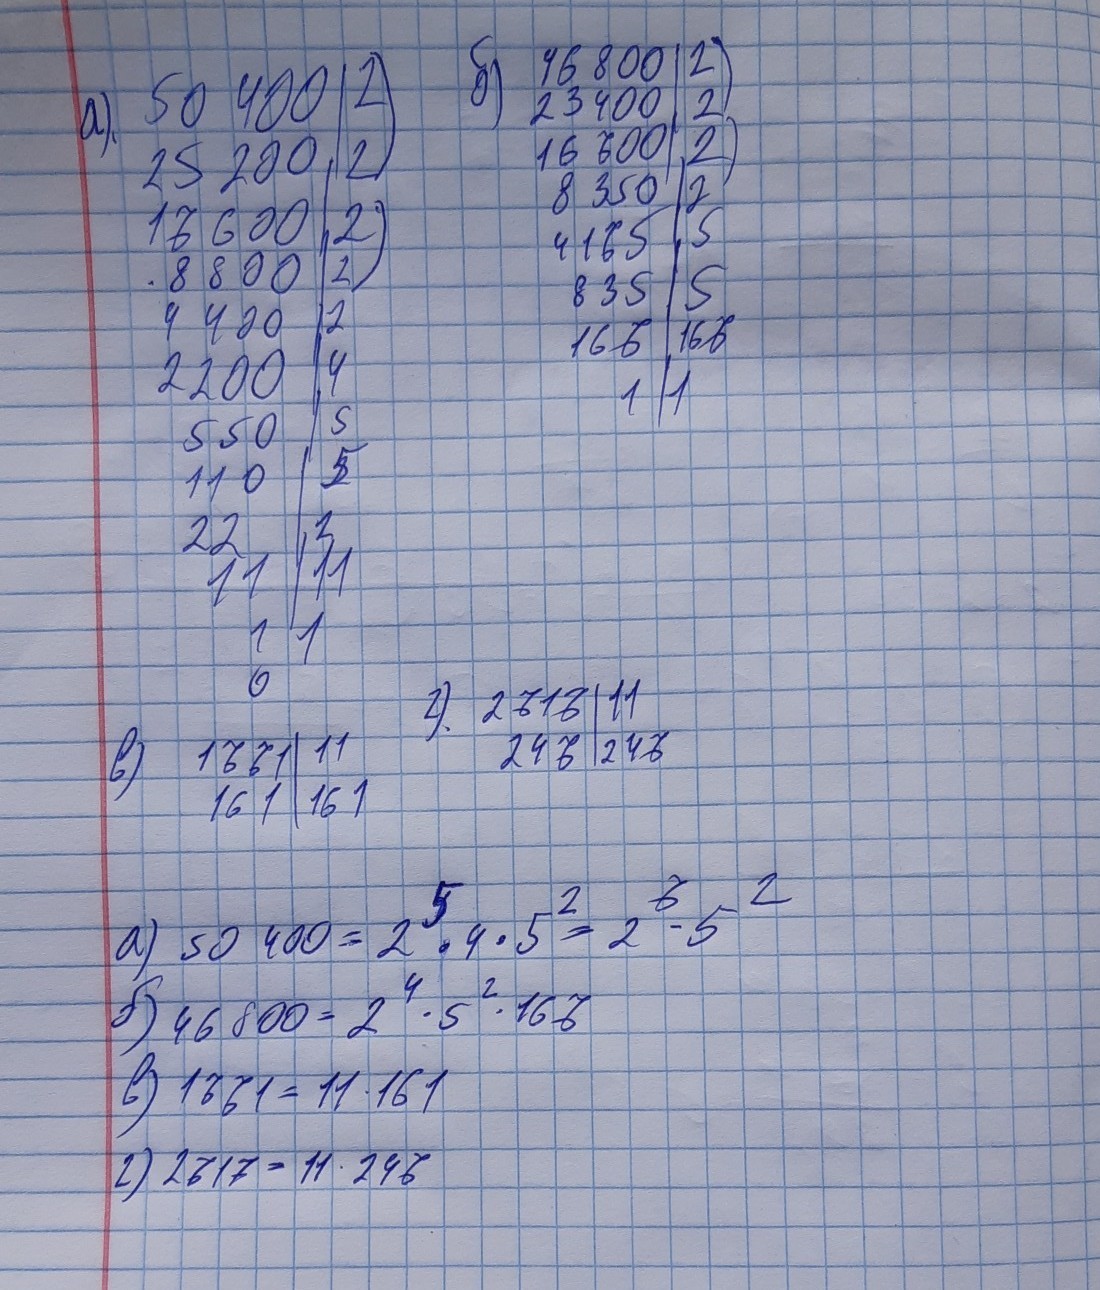 а). 50 400 | 2)
25 200 | 2)
17 600 | 2)
8 800 | 2)
4 400 | 2
2200 | 4
550 | 5
110 | 5
22 | 2
11 | 11
1 | 1
0
б) 46 800 | 2)
23 400 | 2)
16 700 | 2)
8 350 | 2
4175 | 5
835 | 5
167 | 167
1 | 1
в) 1771 | 11
161 | 161
г). 2717 | 11
247 | 247
а) 50 400 = 2⁵ · 4 · 5² = 2⁷ · 5²
б) 46 800 = 2⁴ · 5² · 167
в) 1771 = 11 · 161
г) 2717 = 11 · 247